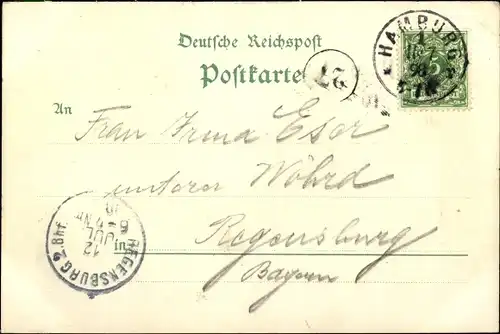 Deutsche Reichspost
Postkarte
27
HAMBURG
1
98
5
An
Frau Irma Eser
unterer Wöhrd
in
Regensburg
Bayern
REGENSBURG 2. Bhf.
12
JUL